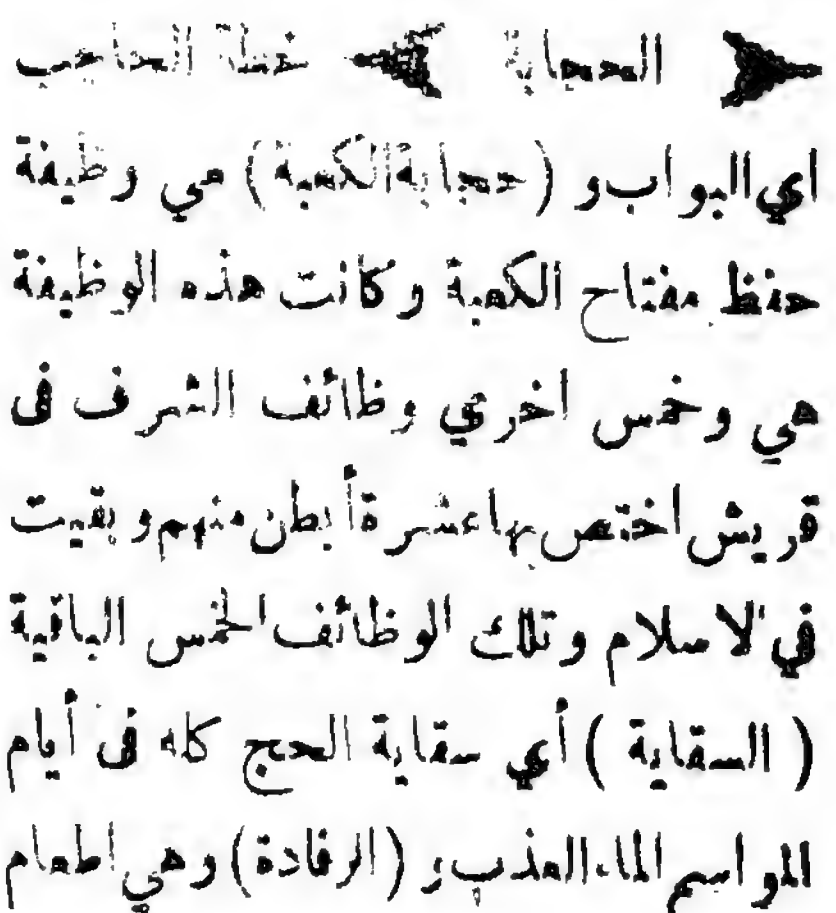 الحجابة خطة الحاجب
اي البواب و (حجابة الكعبة) هي وظيفة
حفظ مفتاح الكعبة وكانت هذه الوظيفة
هي وخمس اخري وظائف الشرف فى
قريش اختص بها عشرة أبطن منهم وبقيت
في الاسلام وتلك الوظائف الخمس الباقية
( السقاية ) أي سقاية الحجج كله فى أيام
المواسم الماء العذب و (الرفادة) وهي اطعام